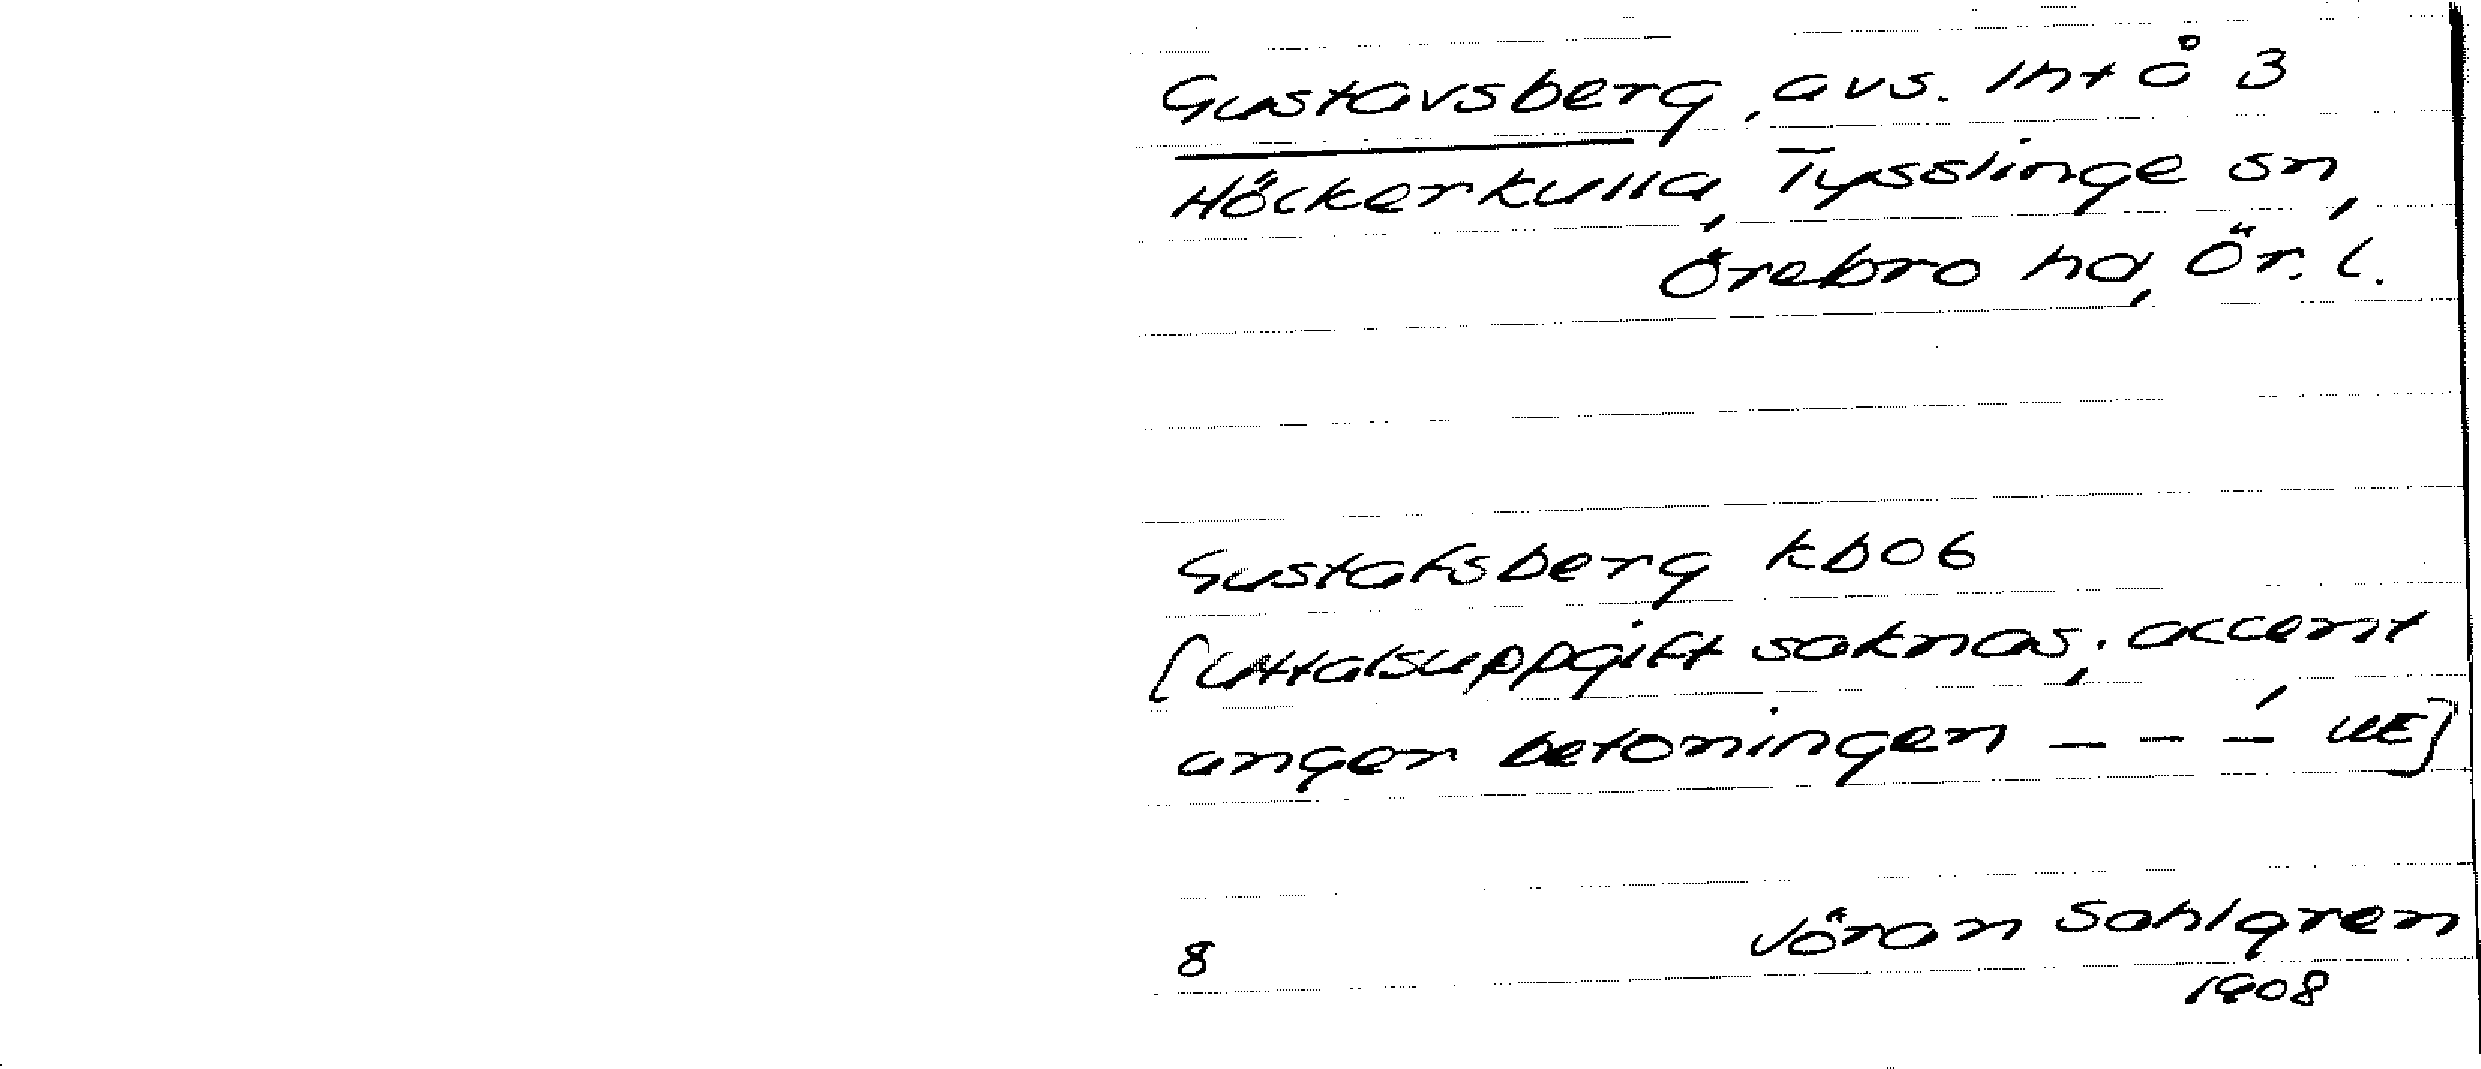 Gustavsberg, avs. 1ht å 3
Höckerkulla, Tysslinge sn,
Örebro hd, Ör. l.
Gustafsberg kb06
[Uttalsuppgift saknas; accent
anger betoningen – – –́ UE]
8 Jöran Sahlgren
1908